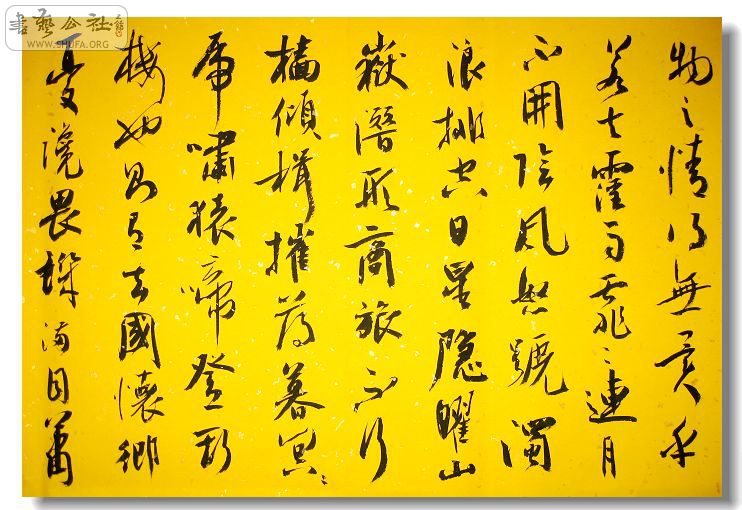 書藝公社
WWW.SHUFA.ORG
物之情得無異乎
若夫霪雨霏〻連月
不開陰風怒號濁
浪排空日星隱曜山
嶽潛形商旅不行
檣傾楫摧薄暮冥〻
虎嘯猿啼登斯
樓也則有去國懷鄉
憂讒畏譏滿目蕭